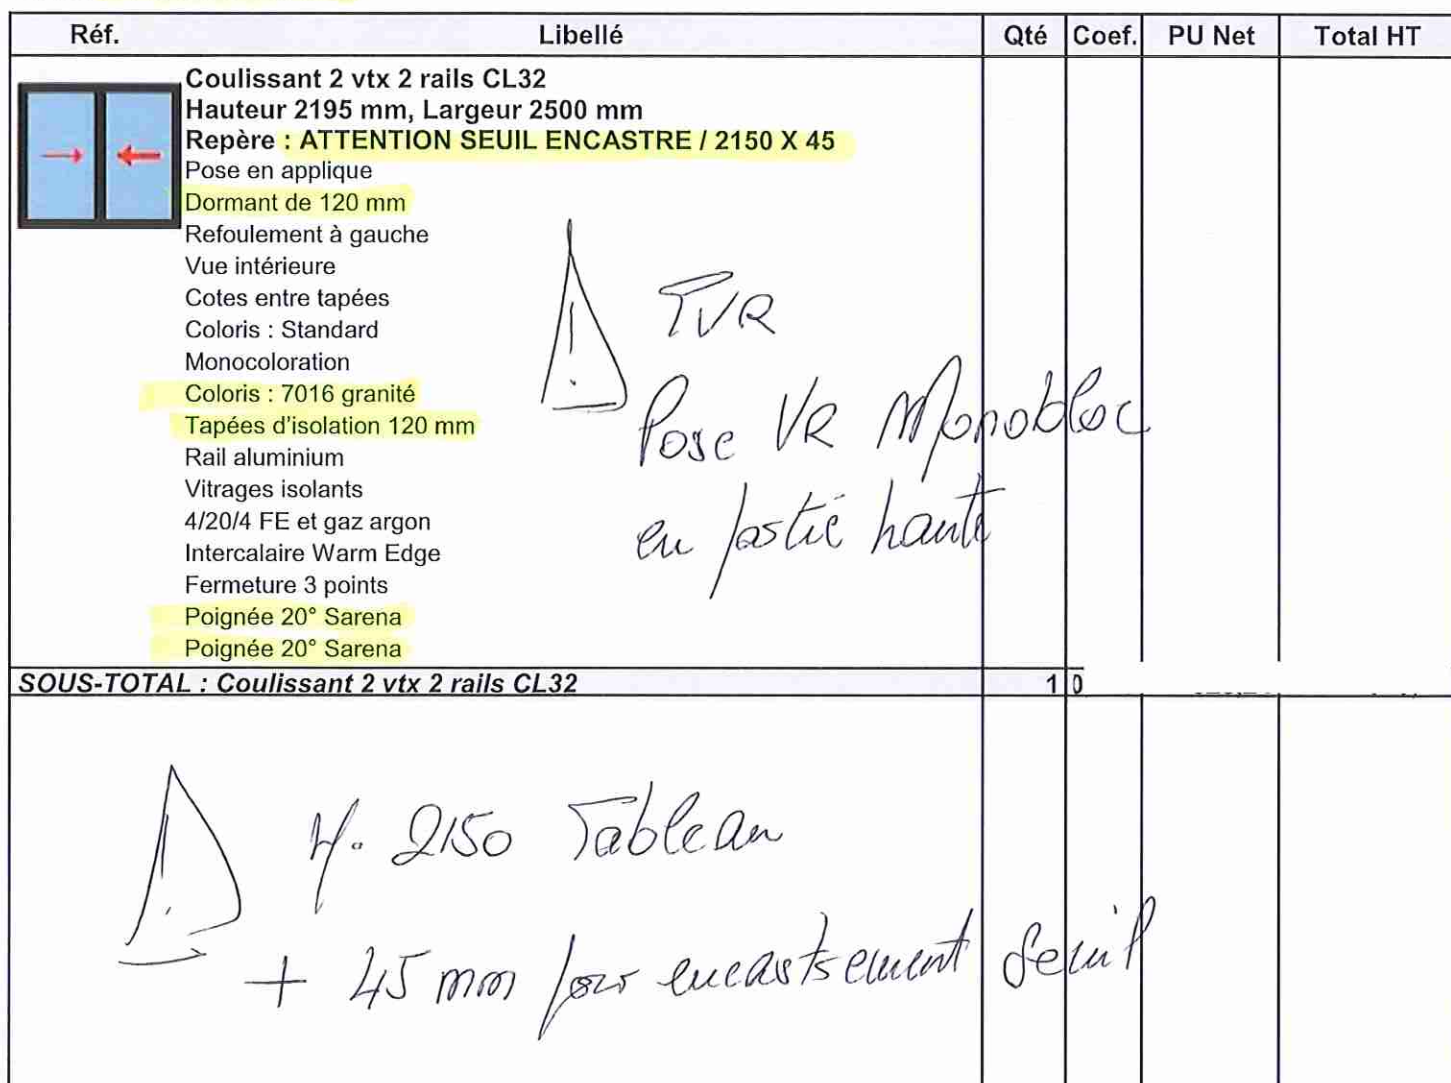 Réf. Libellé Qté Coef. PU Net Total HT
Coulissant 2 vtx 2 rails CL32
Hauteur 2195 mm, Largeur 2500 mm
Repère : ATTENTION SEUIL ENCASTRE / 2150 X 45
Pose en applique
Dormant de 120 mm
Refoulement à gauche
Vue intérieure
Cotes entre tapées
Coloris : Standard
Monocoloration
Coloris : 7016 granité
Tapées d'isolation 120 mm
Rail aluminium
Vitrages isolants
4/20/4 FE et gaz argon
Intercalaire Warm Edge
Fermeture 3 points
Poignée 20° Sarena
Poignée 20° Sarena
! TVR
Pose VR Monobloc
en partie haute
SOUS-TOTAL : Coulissant 2 vtx 2 rails CL32 1 0
! H. 2150 Tableau
+ 45 mm pour encastrement seuil